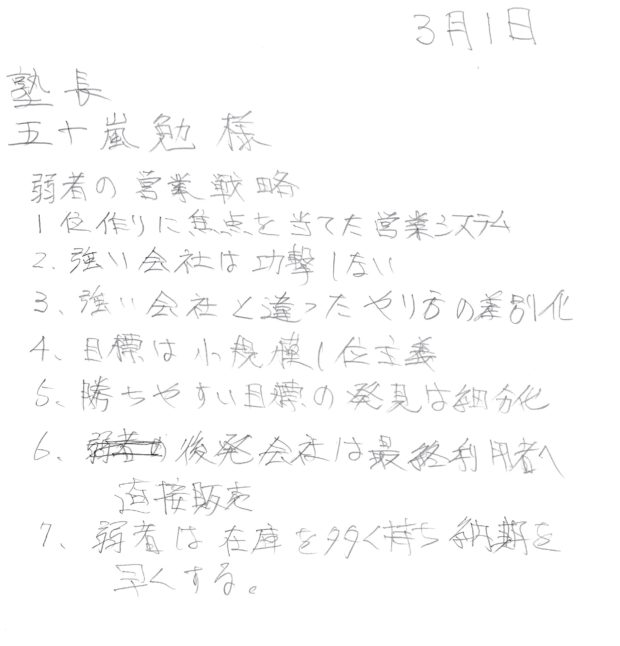 3月1日
塾長
五十嵐勉 様
弱者の営業戦略
1位作りに焦点を当てた営業システム
2. 強い会社は攻撃しない
3、強い会社と違ったやり方の差別化
4、目標は小規模1位主義
5、勝ちやすい目標の発見は細分化
6、弱者の後発会社は最終利用者へ
直接販売
7、弱者は在庫を多く持ち納期を
早くする。